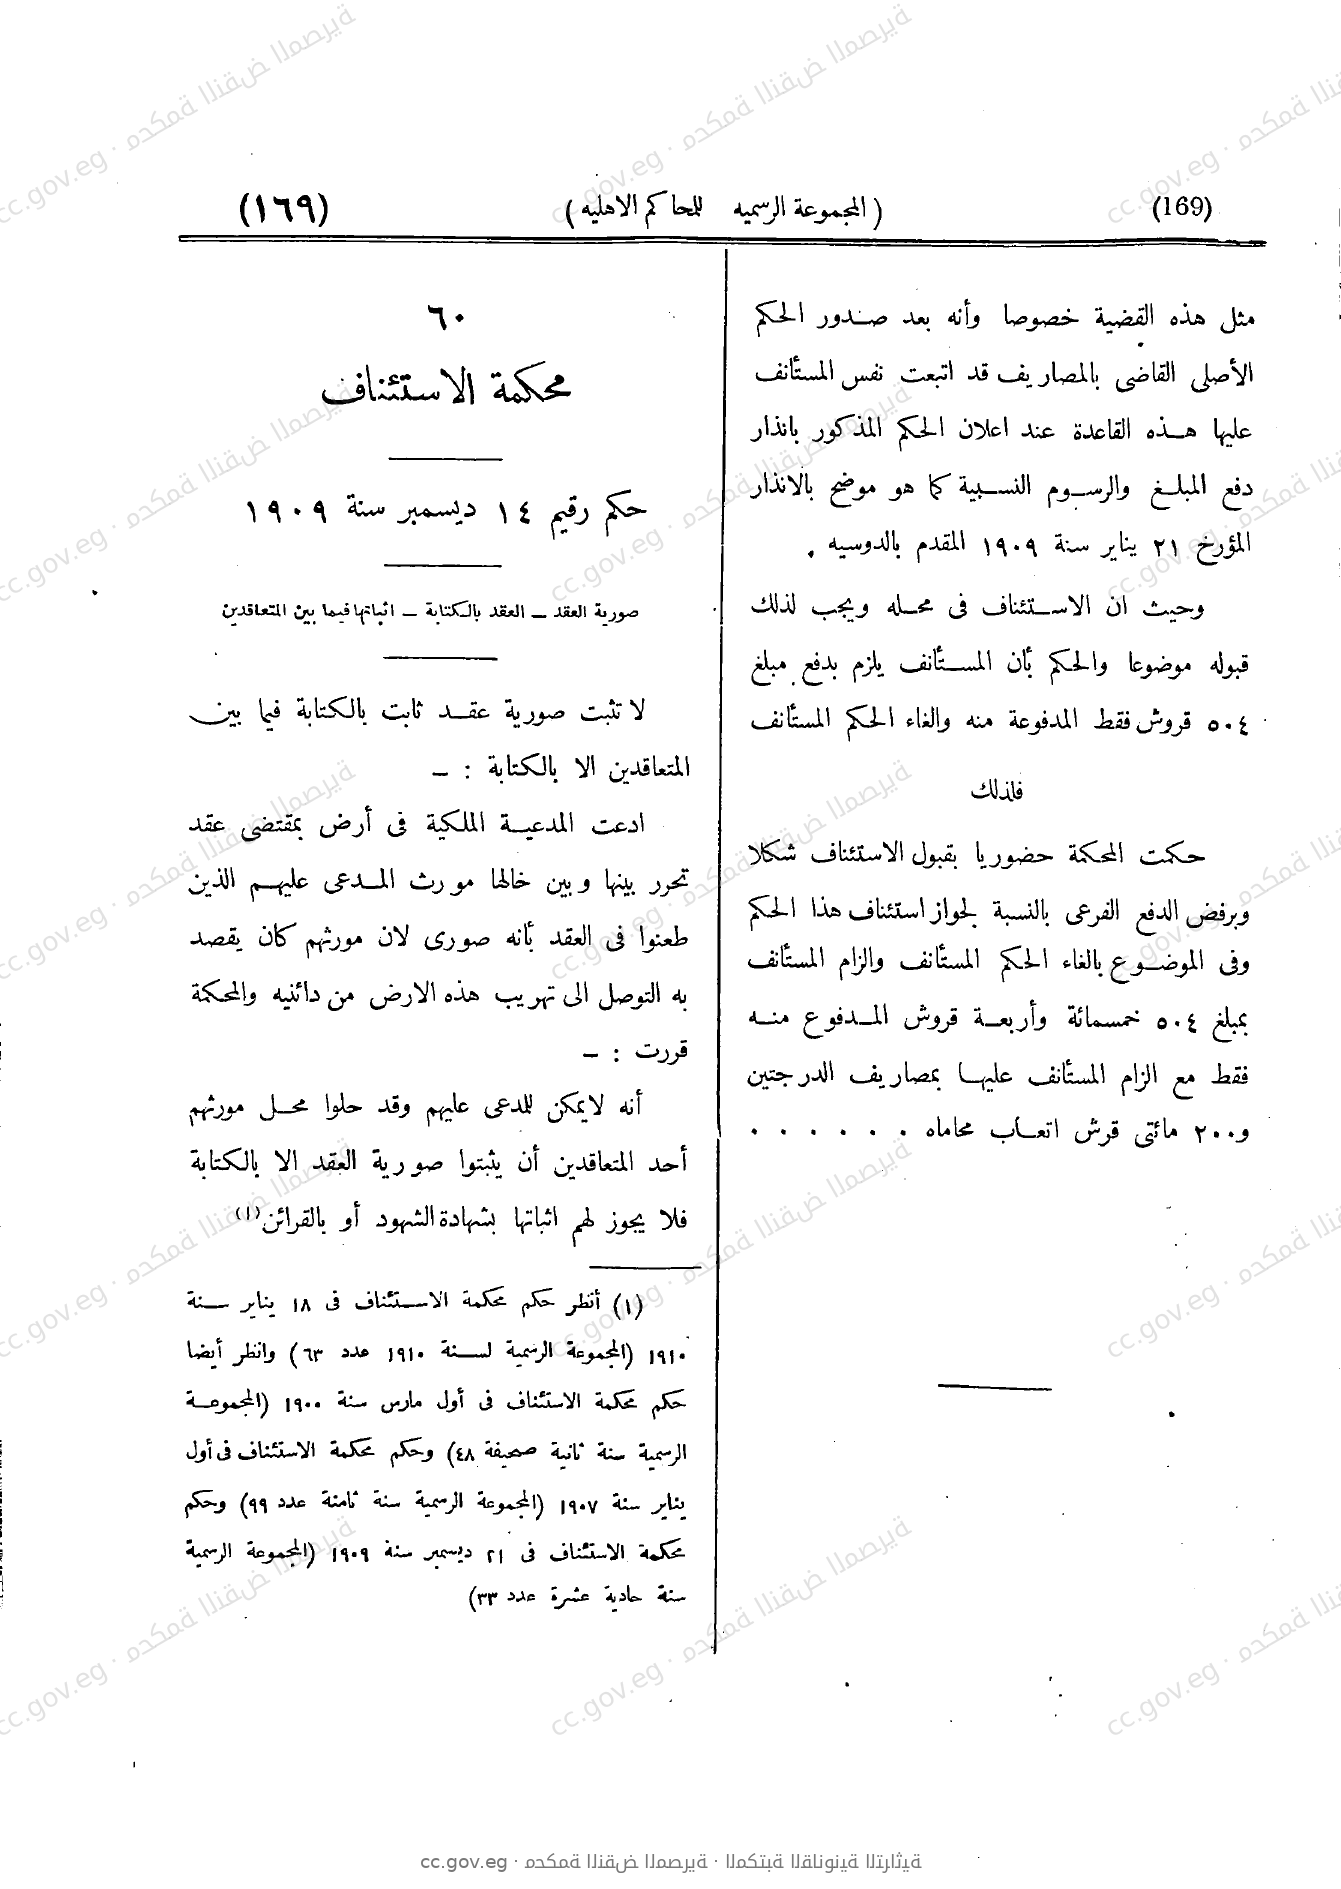 (169)
(المجموعة الرسميه للمحاكم الاهليه)
(١٦٩)
مثل هذه القضية خصوصا وأنه بعد صدور الحكم
الأصلى القاضى بالمصاريف قد اتبعت نفس المستأنف
عليها هذه القاعدة عند اعلان الحكم المذكور بانذار
دفع المبلغ والرسوم النسبية كما هو موضح بالانذار
المؤرخ ٢١ يناير سنة ١٩٠٩ المقدم بالدوسيه .
وحيث ان الاستئناف فى محله ويجب لذلك
قبوله موضوعا والحكم بأن المستأنف يلزم بدفع مبلغ
٥٠٤ قروش فقط المدفوعة منه والغاء الحكم المستأنف
فلذلك
حكمت المحكمة حضوريا بقبول الاستئناف شكلا
وبرفض الدفع الفرعى بالنسبة لجواز استئناف هذا الحكم
وفى الموضوع بالغاء الحكم المستأنف والزام المستأنف
بمبلغ ٥٠٤ خمسمائة وأربعة قروش المدفوع منه
فقط مع الزام المستأنف عليها بمصاريف الدرجتين
و٢٠٠ مائتى قرش اتعاب محاماه . . . . . .
٦٠
محكمة الاستئناف
حكم رقيم ١٤ ديسمبر سنة ١٩٠٩
صورية العقد – العقد بالكتابة – اثباتها فيما بين المتعاقدين
لا تثبت صورية عقد ثابت بالكتابة فيما بين
المتعاقدين الا بالكتابة : –
ادعت المدعية الملكية فى أرض بمقتضى عقد
تحرر بينها وبين خالها مورث المدعى عليهم الذين
طعنوا فى العقد بأنه صورى لان مورثهم كان يقصد
به التوصل الى تهريب هذه الارض من دائنيه والمحكمة
قررت : –
أنه لايمكن للمدعى عليهم وقد حلوا محل مورثهم
أحد المتعاقدين أن يثبتوا صورية العقد الا بالكتابة
فلا يجوز لهم اثباتها بشهادة الشهود أو بالقرائن(١)
(١) أنظر حكم محكمة الاستئناف فى ١٨ يناير سنة
١٩١٠ (المجموعة الرسمية لسنة ١٩١٠ عدد ٦٣) وانظر أيضا
حكم محكمة الاستئناف فى أول مارس سنة ١٩٠٠ (المجموعة
الرسمية سنة ثانية صحيفة ٤٨) وحكم محكمة الاستئناف فى أول
يناير سنة ١٩٠٧ (المجموعة الرسمية سنة ثامنة عدد ٩٩) وحكم
محكمة الاستئناف فى ٢١ ديسمبر سنة ١٩٠٩ (المجموعة الرسمية
سنة حادية عشرة عدد ٣٣)
cc.gov.eg · محكمة النقض المصرية · المكتبة القانونية التراثية